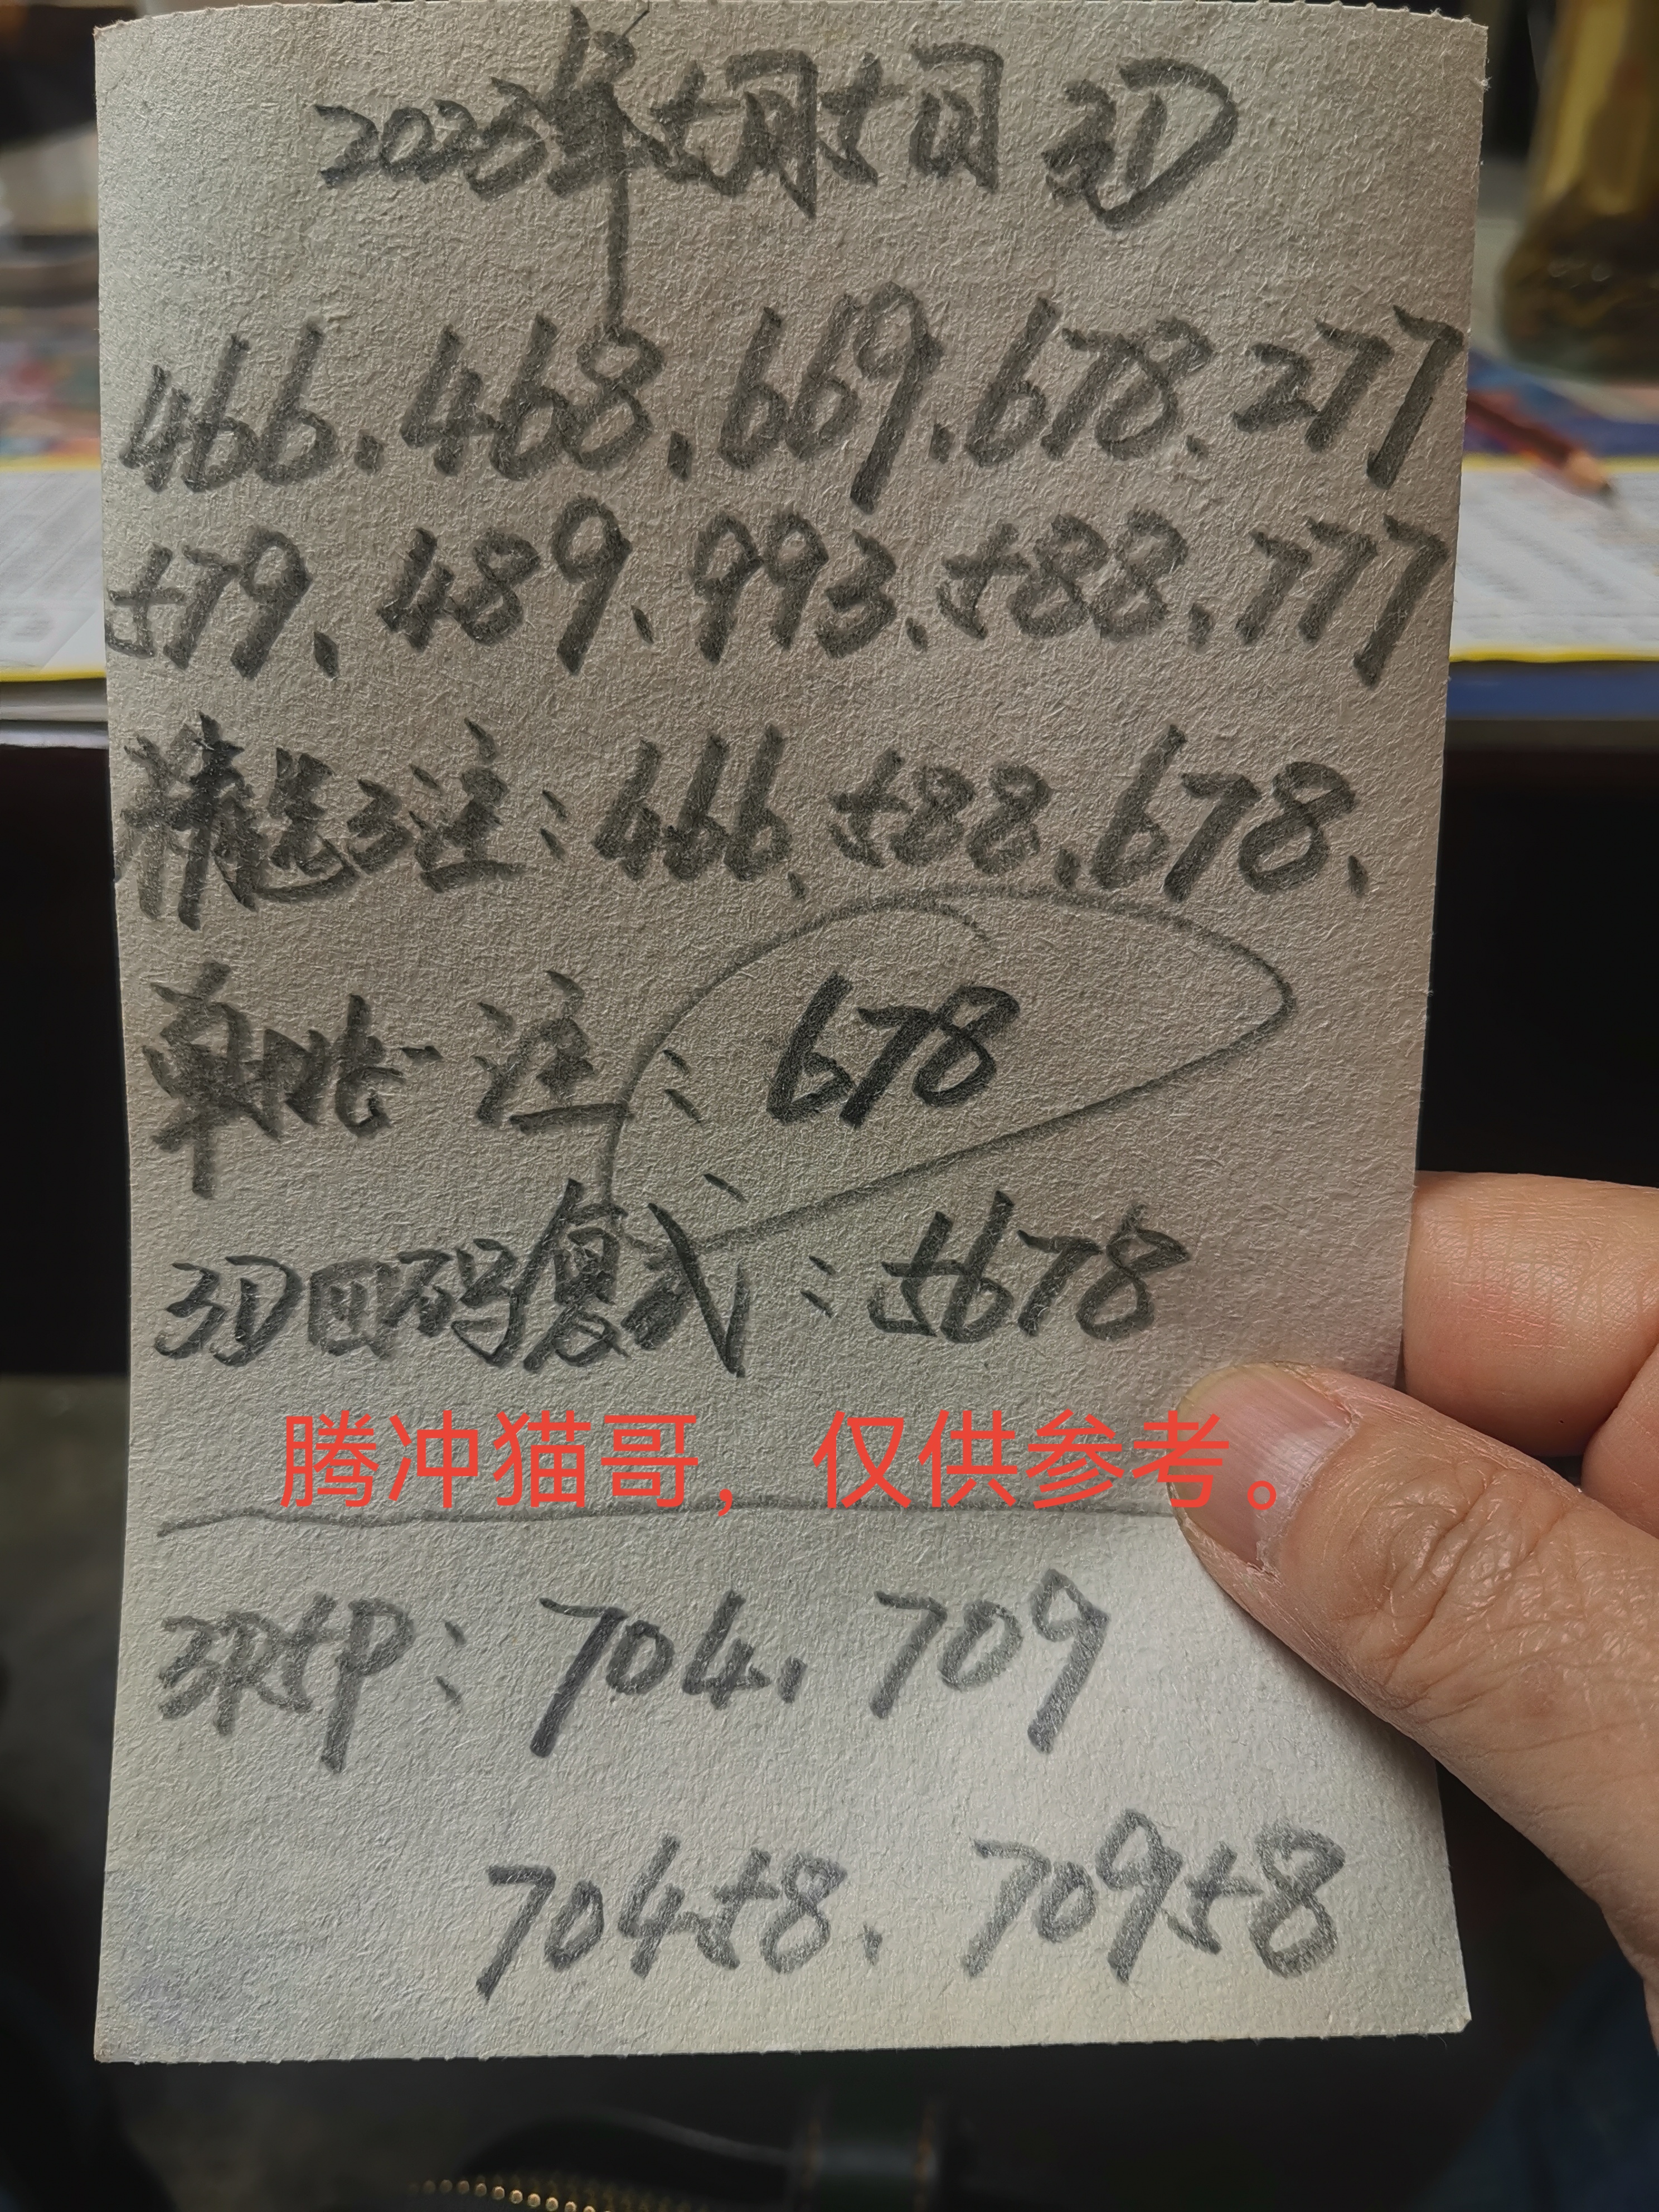 2023年5月5日 3D
466.468.669.678.277
579.489.993.588.777
精选3注:466.588.678.
单挑一注:678
3D四码复式:5678
腾冲猫哥，仅供参考。
那5P:704.709
70458.70958